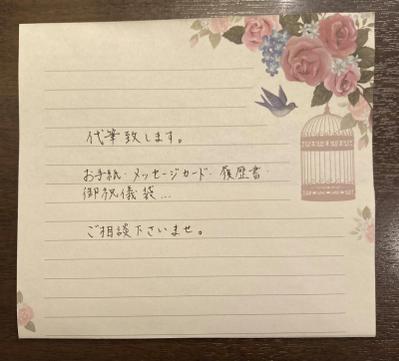 代筆致します。
お手紙・メッセージカード・履歴書・
御祝儀袋...
ご相談下さいませ。